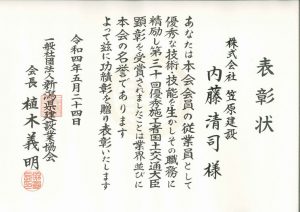 表彰状
株式会社 笠原建設
内藤清司 様
あなたは本会会員の従業員として
優秀な技術・技能を生かしその職務に
精励し第三十回優秀施工者国土交通大臣
顕彰を受賞されましたことは業界並びに
本会の名誉であります
よって茲に功績彰を贈り表彰いたします
令和四年五月二十四日
一般社団法人新潟県建設業協会
会長 植木義明